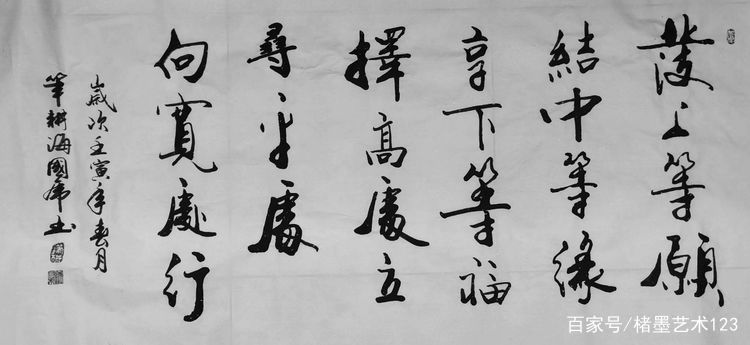 發上等願
結中等緣
享下等福
擇高處立
尋平處
向寬處行
歲次壬寅年春月
筆耕海國席书
百家号/楮墨艺术123